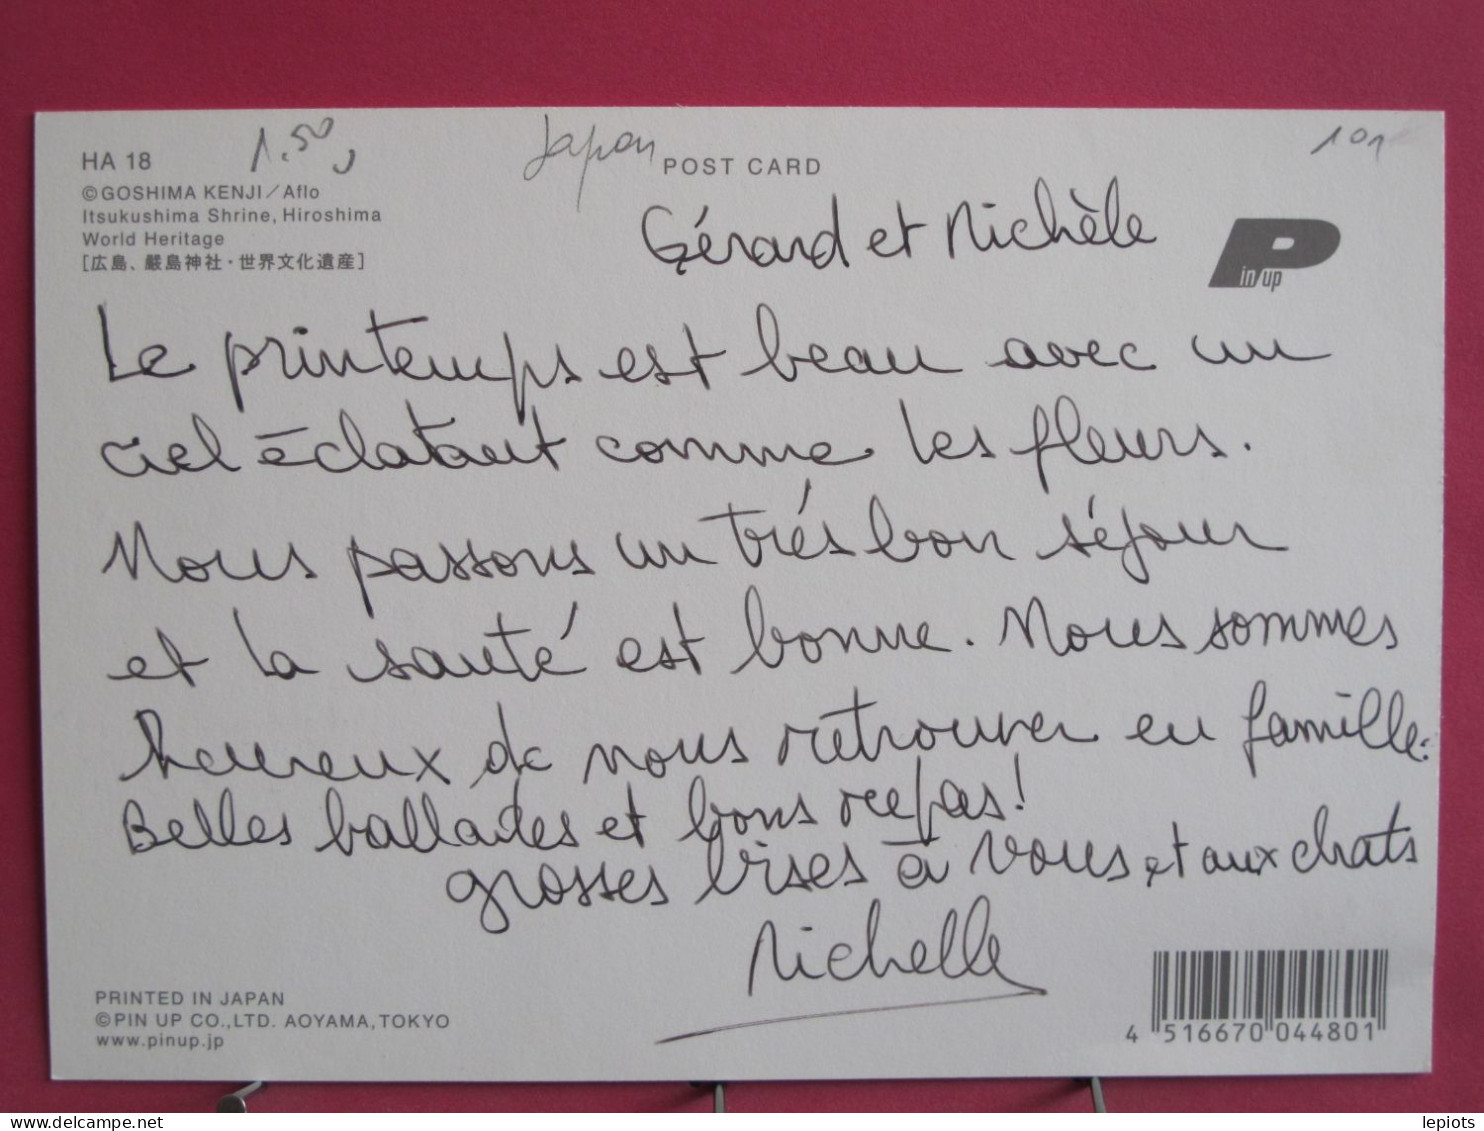 HA 18
1.50
Japon
POST CARD
101
©GOSHIMA KENJI/Aflo
Itsukushima Shrine, Hiroshima
World Heritage
[広島、厳島神社・世界文化遺産]
Gérard et Michèle
P
in/up
Le printemps est beau avec un
ciel éclatant comme les fleurs.
Nous passons un trés bon séjour
et la santé est bonne. Nous sommes
heureux de nous retrouver en famille.
Belles ballades et bons repas!
grosses bises à vous et aux chats
Michelle
PRINTED IN JAPAN
©PIN UP CO.,LTD. AOYAMA,TOKYO
www.pinup.jp
4 516670 044801
delcampe.net
lepiots